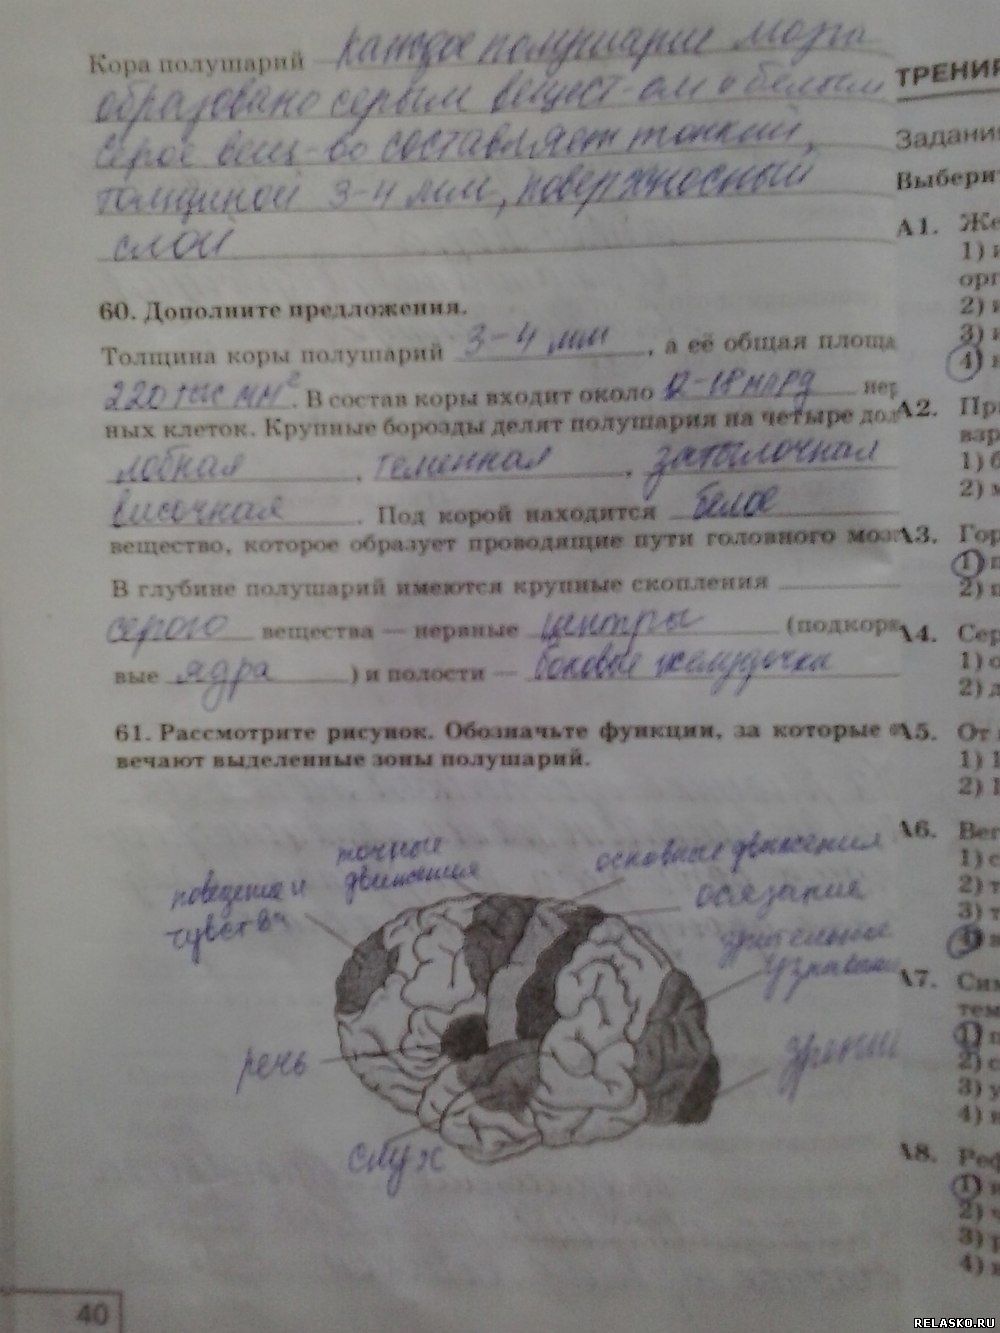 Кора полушарий Каждое полушарие мозга
образовано серым вещест-ом и белым
Серое вещ-во составляет тонкий,
толщиной 3-4 мм, поверхносный
слой
60. Дополните предложения.
Толщина коры полушарий 3-4 мм, а её общая площа
220 тыс мм². В состав коры входит около 12-18 млрд нер
ных клеток. Крупные борозды делят полушария на четыре дол
лобная, теменная, затылочная
височная. Под корой находится белое
вещество, которое образует проводящие пути головного моз
В глубине полушарий имеются крупные скопления
серого вещества — нервные центры (подкорк
вые ядра) и полости — боковые желудочки
61. Рассмотрите рисунок. Обозначьте функции, за которые о
вечают выделенные зоны полушарий.
точные
движения
основные движения
поведения и
чувства
осязания
зрительное
речь
зрение
слух
40
ТРЕНИР
Задани
Выберит
А1. Же
1) и
орг
2)
3)
4)
А2. Пр
взр
1) б
2) м
А3. Гор
1) п
2) п
А4. Сер
1) о
2) д
А5. От
1) 1
2) 1
А6. Вег
1) с
2) т
3) т
4)
А7. Сим
тем
1)
2) с
3) у
4)
А8. Реф
1)
2) ч
3) р
4)
RELASKO.RU